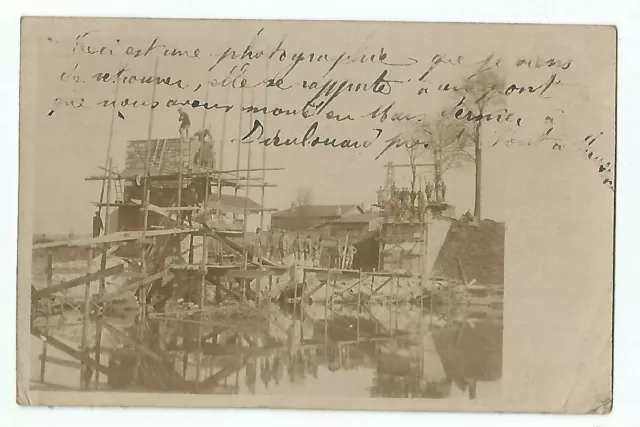 Ceci est une photographie que je viens
de retrouver, elle se rapporte à un pont
que nous avons monté en Mars dernier à
Dieulouard